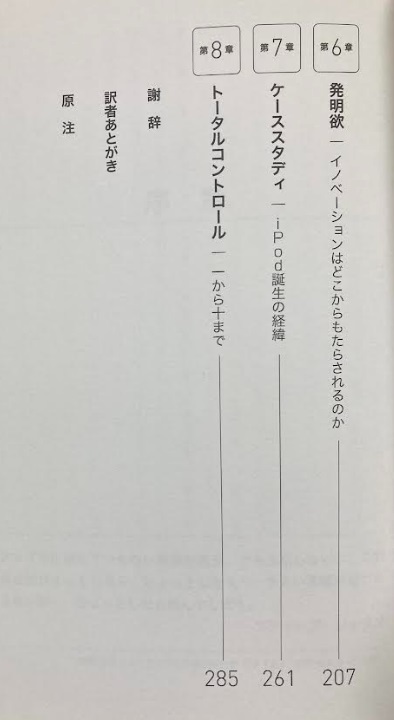 第6章
発明欲 — イノベーションはどこからもたらされるのか
207
第7章
ケーススタディ — iPod誕生の経緯
261
第8章
トータルコントロール — 一から十まで
285
謝辞
訳者あとがき
原注